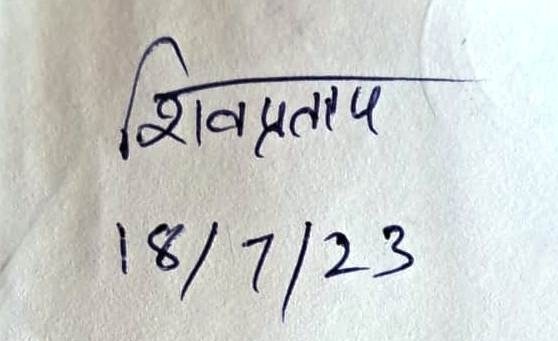 शिवप्रताप
18/7/23